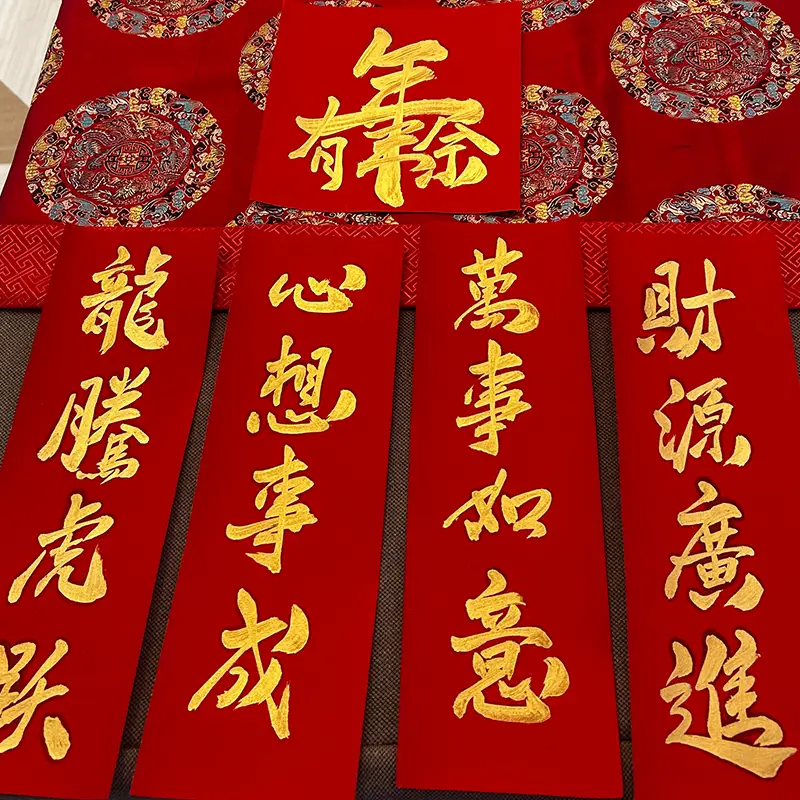 年年有餘
龍騰虎躍
心想事成
萬事如意
財源廣進